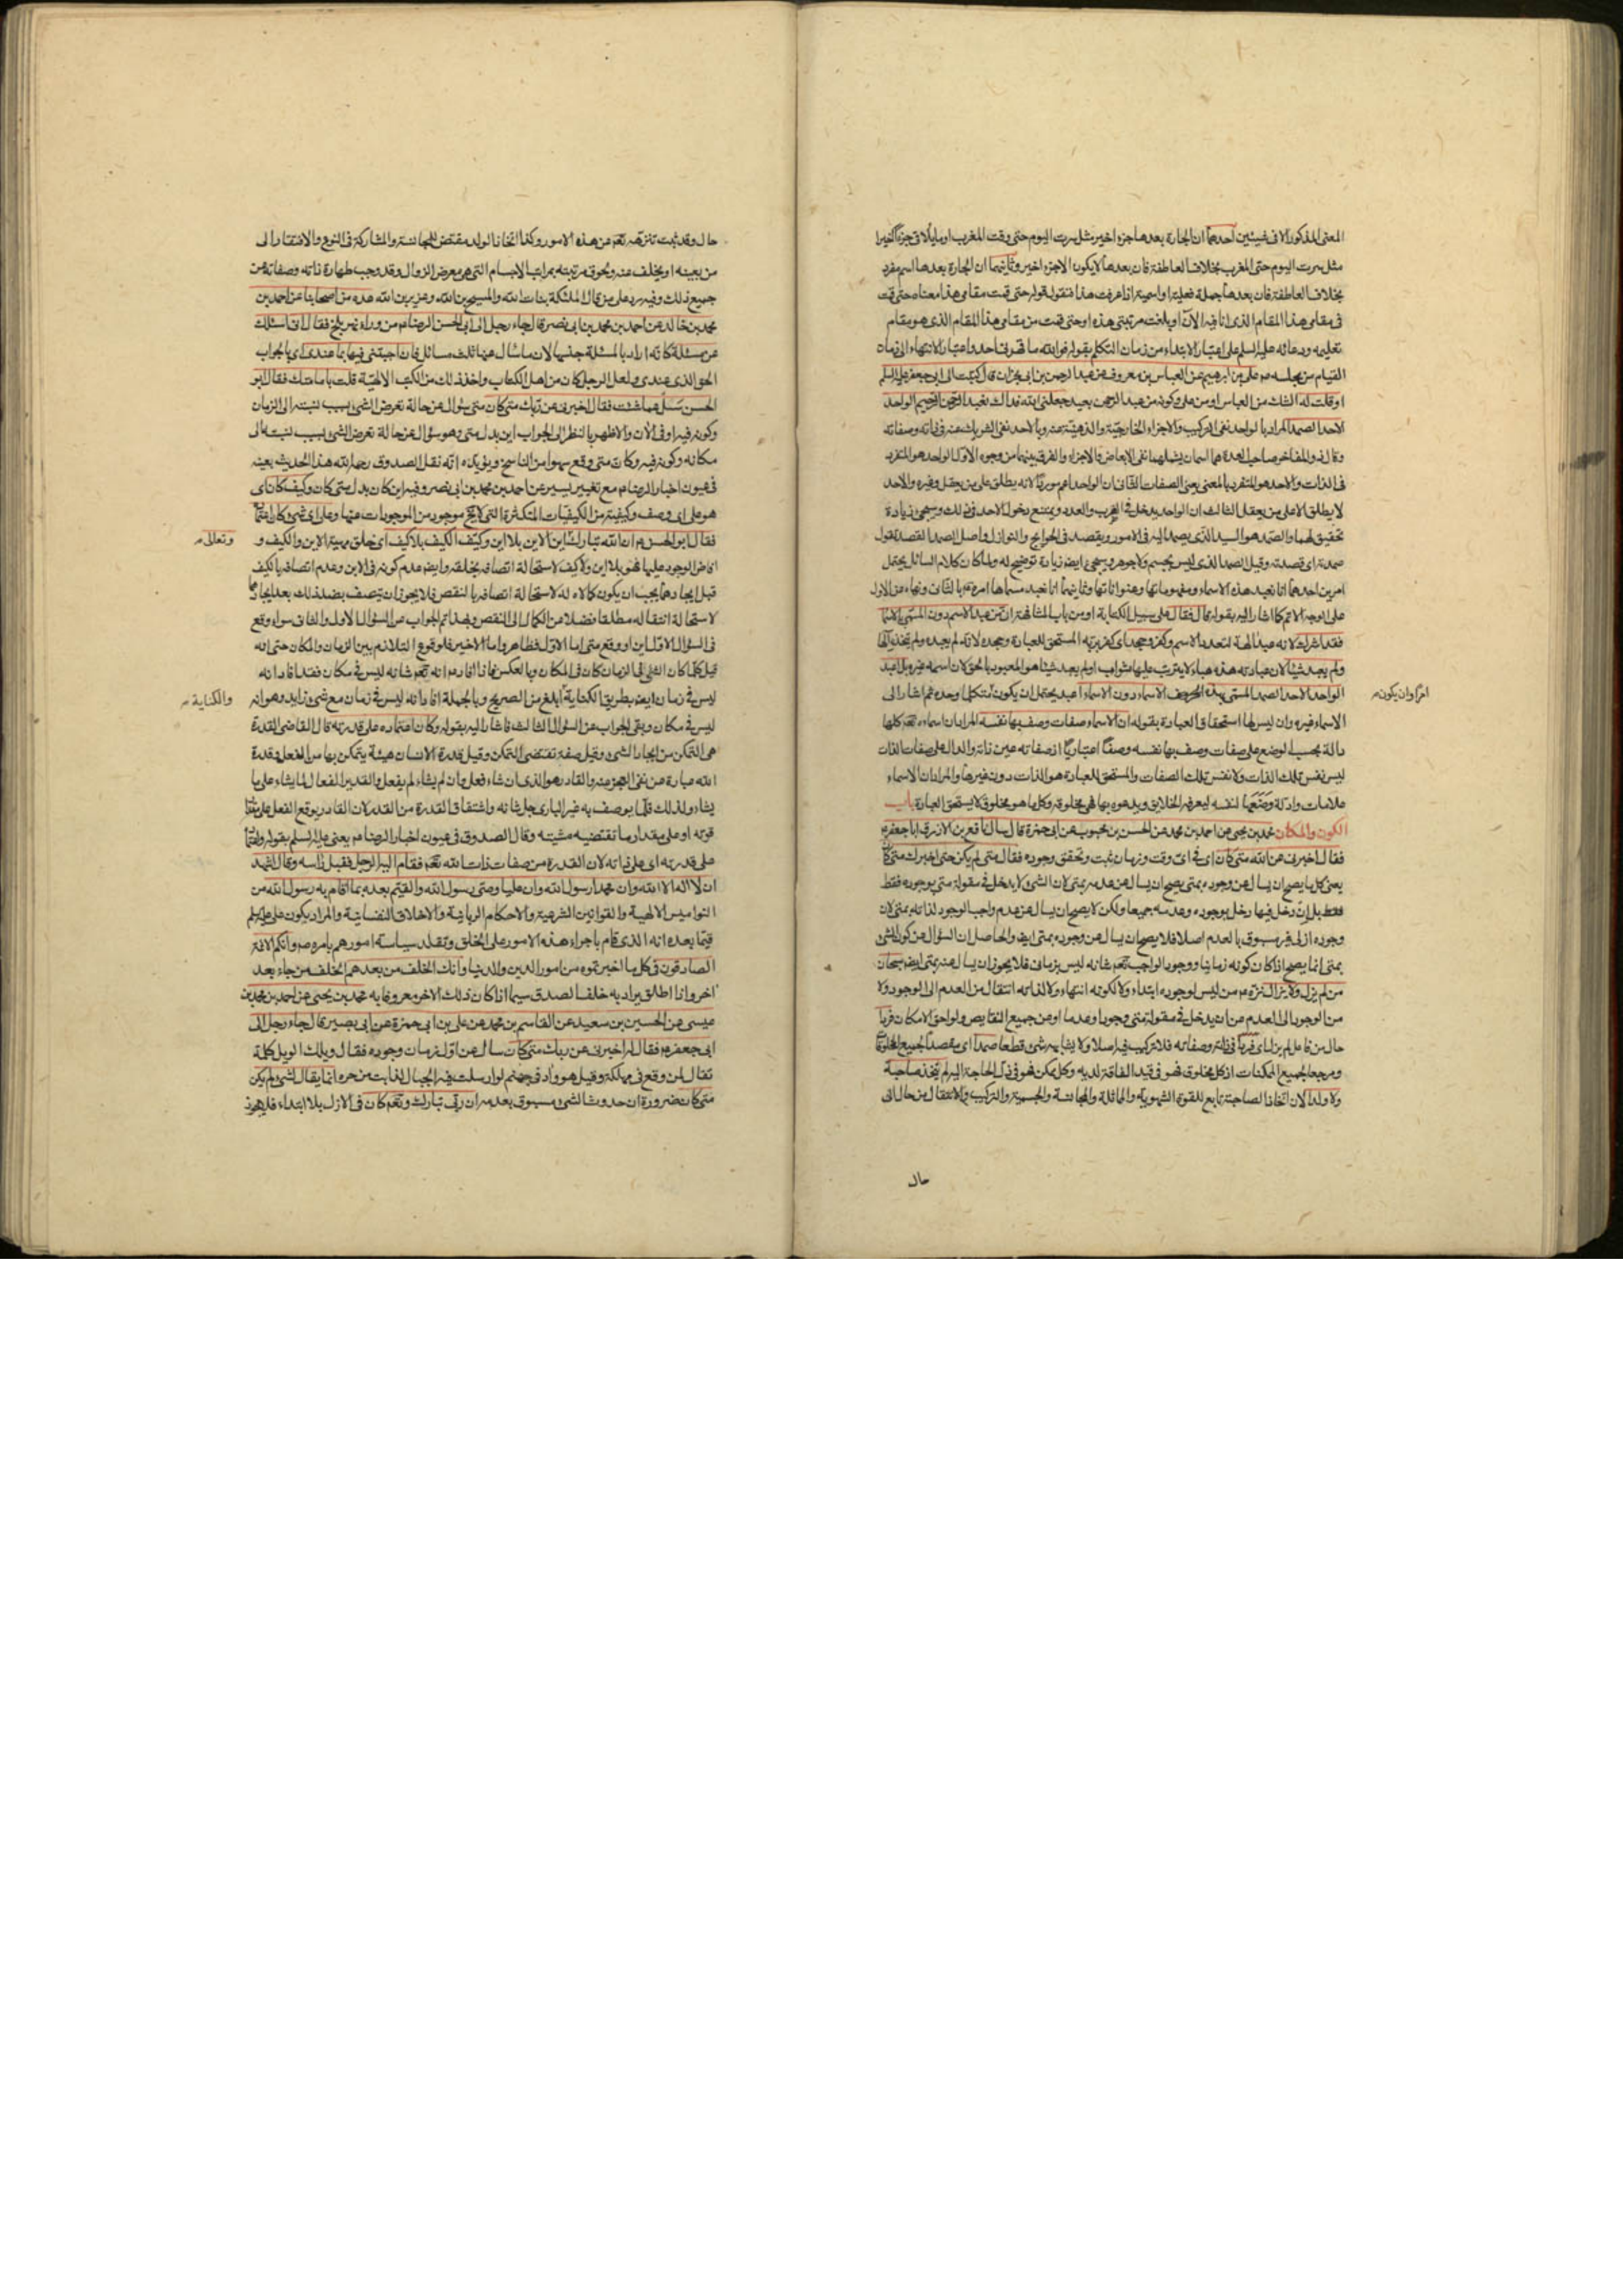 المعنى المذكور الا فى شيئين احدهما ان الجارة بعدها جزء اخير مثل سرت اليوم حتى وقت المغرب او ما يلاقى جزءاً اخيرا
مثل سرت اليوم حتى المغرب بخلاف العاطفة فان بعدها لا يكون الا جزء اخير وثانيهما ان الجارة بعدها اسم مفرد
بخلاف العاطفة فان بعدها جملة فعلية او اسمية اذا عرفت هذا فنقول قوله حتى قمت مقامى هذا معناه حتى قمت
فى مقامى هذا المقام الذى انا فيه الآن او بلغت مرتبتى هذه او حتى قمت من مقامى هذا المقام الذى هو مقام
تعليمه ودعائه عليه السلم على اعتبار الابتداء من زمان التكلم بقوله فو الله ما قهرنى احد واعتبار الانتهاء الى زمان
القيام من مجلسه م على بن ابرهيم عن العباس بن معروف عن عبد الرحمن بن ابى نجران قال كتبت الى ابى جعفر عليه السلم
او قلت له الشك من العباس او من على وكونه من عبد الرحمن بعيد جعلنى الله فداك نعبد الرحمن الرحيم الواحد
الاحد الصمد المراد بالواحد نفى التركيب والاجزاء الخارجية والذهنية عنه وبالاحد نفى الشريك عنه فى ذاته وصفاته
وقال فى والمفاخر صاحب العدة هما اسمان يشملهما نفى الابعاض والاجزاء والفرق بينهما من وجوه الاول الواحد هو المتفرد
فى الذات والاحد هو المتفرد بالمعنى يعنى الصفات الثانى ان الواحد اعم موردا لانه يطلق على من يعقل وغيره والاحد
لا يطلق الا على من يعقل الثالث ان الواحد يدخل فى الضرب والعدد ويمتنع دخول الاحد فى ذلك وسيجئ زيادة
تحقيق لهما والصمد هو السيد الذى يصمد اليه فى الامور ويقصد فى الحوايج والنوازل واصل الصمد القصد تقول
صمدته اى قصدته وقيل الصمد الذى ليس بجسم ولا جوهر وسيجئ ايضا زيادة توضيح له ولما كان كلام السائل يحتمل
امرين احدهما انا نعبد هذه الاسماء ومفهوماتها وعنواناتها وثانيهما انا نعبد مسماها امره ع بالثانى ونهاه عن الاول
على الوجه الاتم كما اشار اليه بقوله قال فقال على سبيل الكتابة او من باب المشافهة ان من عبد الاسم دون المسمى بالاسماء
فقد اشرك لانه عبد الهة لتعدد الاسم وكفر وجحد اى كفر بربه المستحق للعبادة وجحده لانه لم يعبده ولم يتخذه الها
ولم يعبد شيئا لان عبادته هذه هباء لا يترتب عليها ثواب او لم يعبد شيئا هو المعبود بالحق لان اسمه غيره بل اعبد
الواحد الاحد الصمد المسمى بهذه الحروف الاسماء دون الاسماء اعبد يحتمل ان يكون للتكلم وحده ثم اشار الى
الاسماء غيره وان ليس لها استحقاق العبادة بقوله ان الاسماء صفات وصف بها نفسه المراد ان اسماءه تعم كلها
دالة بحسب الوضع على صفات وصف بها نفسه وصفا اعتباريا اذ صفاته عين ذاته والدال على صفات الذات
ليس نفس تلك الذات ولا نفس تلك الصفات والمستحق للعبادة هو الذات دون غيرها والمراد ان الاسماء
علامات وادلة وضعها لنفسه ليعرفه الخلايق ويدعوه بها فهى مخلوقة وكل ما هو مخلوق لا يستحق العبادة باب
الكون والمكان محمد بن يحيى عن احمد بن محمد عن الحسن بن محبوب عن ابى حمزة قال سال نافع بن الازرق ابا جعفر ع
فقال اخبرنى عن الله متى كان اى فى اى وقت وزمان ثبت وتحقق وجوده فقال متى لم يكن حتى اخبرك متى كان
يعنى كل ما يصح ان يسال عن وجوده بمتى يصح ان يسال عن عدمه بمتى لان الشئ لا يدخل فى مقولة متى بوجوده فقط
فقط بل ان دخل فيها دخل بوجوده وعدمه جميعا ولكن لا يصح ان يسال عن عدم واجب الوجود لذاته بمتى لان
وجوده ازلى غير مسبوق بالعدم اصلا فلا يصح ان يسال عن وجوده بمتى ايضا والحاصل ان السؤال عن كون الشئ
بمتى انما يصح اذا كان كونه زمانيا ووجود الواجب تعم شانه ليس بزمانى فلا يجوز ان يسال عنه بمتى ايضا سبحان
من لم يزل ولا يزال نزه م من ليس لوجوده ابتداء ولا لكونه انتهاء ولا لذاته انتقال من العدم الى الوجود ولا
من الوجود الى العدم عن ان يدخل فى مقولة متى وجودا وعدما او من جميع النقايص ولواحق الامكان فردا
حال من فاعل لم يزل اى فردا فى ذاته وصفاته فلا تركيب فيه اصلا ولا يشابهه شئ قطعا صمدا اى مقصدا لجميع المخلوقات
ومرجعا لجميع الممكنات اذ كل مخلوق فهو فى قيد الفاقة لديه وكل ممكن فهو فى ذل الحاجة اليه لم يتخذ صاحبة
ولا ولدا لان اتخاذ الصاحبة تابع للقوة الشهوية والمماثلة والمجانسة والجسمية والتركيب والانتقال من حال الى
حال
امرا وان يكون م
حال وقد ثبت تنزهه تعم عن هذه الامور وكذا اتخاذ الولد مقتض للمجانسة والمشاركة فى النوع والافتقار الى
من يعينه او يخلف عنه ولحوق مرتبته بمراتب الاجسام التى هى معرض الزوال وقد وجب طهارة ذاته وصفاته عن
جميع ذلك وفيه رد على من قال الملئكة بنات الله والمسيح بن الله وعزير بن الله عدة من اصحابنا عن احمد بن
محمد بن خالد عن احمد بن محمد بن ابى نصر قال جاء رجل الى ابى الحسن الرضا م من وراء نهر بلخ فقال انى اسئلك
عن مسئلة كانه اراد بالمسئلة جنسها لان ما سال عنها ثلث مسائل فان اجبتنى فيها بما عندى اى بالجواب
الحق الذى عندى ولعل الرجل كان من اهل الكتاب واخذ ذلك من الكتب الالهية قلت بامامتك فقال ابو
الحسن سل عما شئت فقال اخبرنى عن ربك متى كان متى سؤال عن حالة تعرض الشئ بسبب نسبته الى الزمان
وكونه فيه او فى الآن والاظهر بالنظر الى الجواب اين بدل متى وهو سؤال عن حالة تعرض الشئ بسبب نسبته الى
مكانه وكونه فيه وكان متى وقع سهوا من الناسخ ويؤيده انه نقل الصدوق رحمه الله هذا الحديث بعينه
فى عيون اخبار الرضا م مع تغيير يسير عن احمد بن محمد بن ابى نصر وفيه اين كان بدل متى كان وكيف كان اى
هو على اى وصف وكيفية من الكيفيات المتكثرة التى لا يخ موجود من الموجودات عنها وعلى اى شئ كان اعتماده
فقال ابو الحسن م ان الله تبارك اين الاين بلا اين وكيف الكيف بلا كيف اى خلق مهية الاين والكيف و
افاض الوجود عليها فهو بلا اين ولا كيف لاستحالة اتصافه بخلقه وايضا عدم كونه فى الاين وعدم اتصافه بالكيف
قبل ايجادهما يجب ان يكون كمالا له لاستحالة اتصافه بالنقص فلا يجوز ان يتصف بضد ذلك بعد ايجادهما
لاستحالة انتقاله مطلقا فضلا من الكمال الى النقص وبهذا تم الجواب عن السؤال الاول والثانى سواء وقع
فى السؤال الاول اين او وقع متى اما الاول فظاهر واما الاخير فلوقوع التلازم بين الزمان والمكان حتى انه
قيل كلما كان الشئ فى الزمان كان فى المكان وبالعكس فاذا افاد م انه تعم شانه ليس فى مكان فقد افاد انه
ليس فى زمان ايضا بطريق الكناية ابلغ من الصريح وبالجملة افاد انه ليس فى زمان مع شئ زايد وهو انه
ليس فى مكان وبقى الجواب عن السؤال الثالث فاشار اليه بقوله وكان اعتماده على قدرته قال القاضى القدرة
هى التمكن من ايجاد الشئ وقيل صفة تقتضى التمكن وقيل قدرة الانسان هيئة يتمكن بها من الفعل وقدرة
الله عبارة عن نفى العجز عنه والقادر هو الذى ان شاء فعل وان لم يشاء لم يفعل والقدير الفعال لما يشاء على ما
يشاء ولذلك قلما يوصف به غير البارى جل شانه واشتقاق القدرة من القدر لان القادر يوقع الفعل على مقدار
قوته او على مقدار ما تقتضيه مشيته وقال الصدوق فى عيون اخبار الرضا م يعنى عليه السلم بقوله واعتماده
على قدرته اى على ذاته لان القدرة من صفات ذات الله تعم فقام اليه الرجل فقبل راسه وقال اشهد
ان لا اله الا الله وان محمدا رسول الله وان عليا وصى رسول الله والقيم بعده بما اقام به رسول الله من
النواميس الالهية والقوانين الشرعية والاحكام الربانية والاخلاق النفسانية والمراد بكون على عليه السلم
قيما بعده انه الذى قام باجراء هذه الامور على الخلق وتقلد سياسة امورهم بامره ص وانكم الائمة
الصادقون فى كل ما اخبرتموه من امور الدين والدنيا وانك الخلف من بعدهم الخلف من جاء بعد
اخر واذا اطلق يراد به خلف الصدق سيما اذا كان ذلك الاخر معروفا به محمد بن يحيى عن احمد بن محمد بن
عيسى عن الحسين بن سعيد عن القاسم بن محمد عن على بن ابى حمزة عن ابى بصير قال جاء رجل الى
ابى جعفر م فقال له اخبرنى عن ربك متى كان سال عن اول زمان وجوده فقال ويلك الويل كلمة
تقال لمن وقع فى مهلكة وقيل هو واد فى جهنم لو ارسلت فيه الجبال لذابت من حره انما يقال لشئ لم يكن
متى كان ضرورة ان حدوث الشئ مسبوق بعدمه ان ربى تبارك وتعم كان فى الازل بلا ابتداء فلا يجوز
وتعالى م
والكناية م